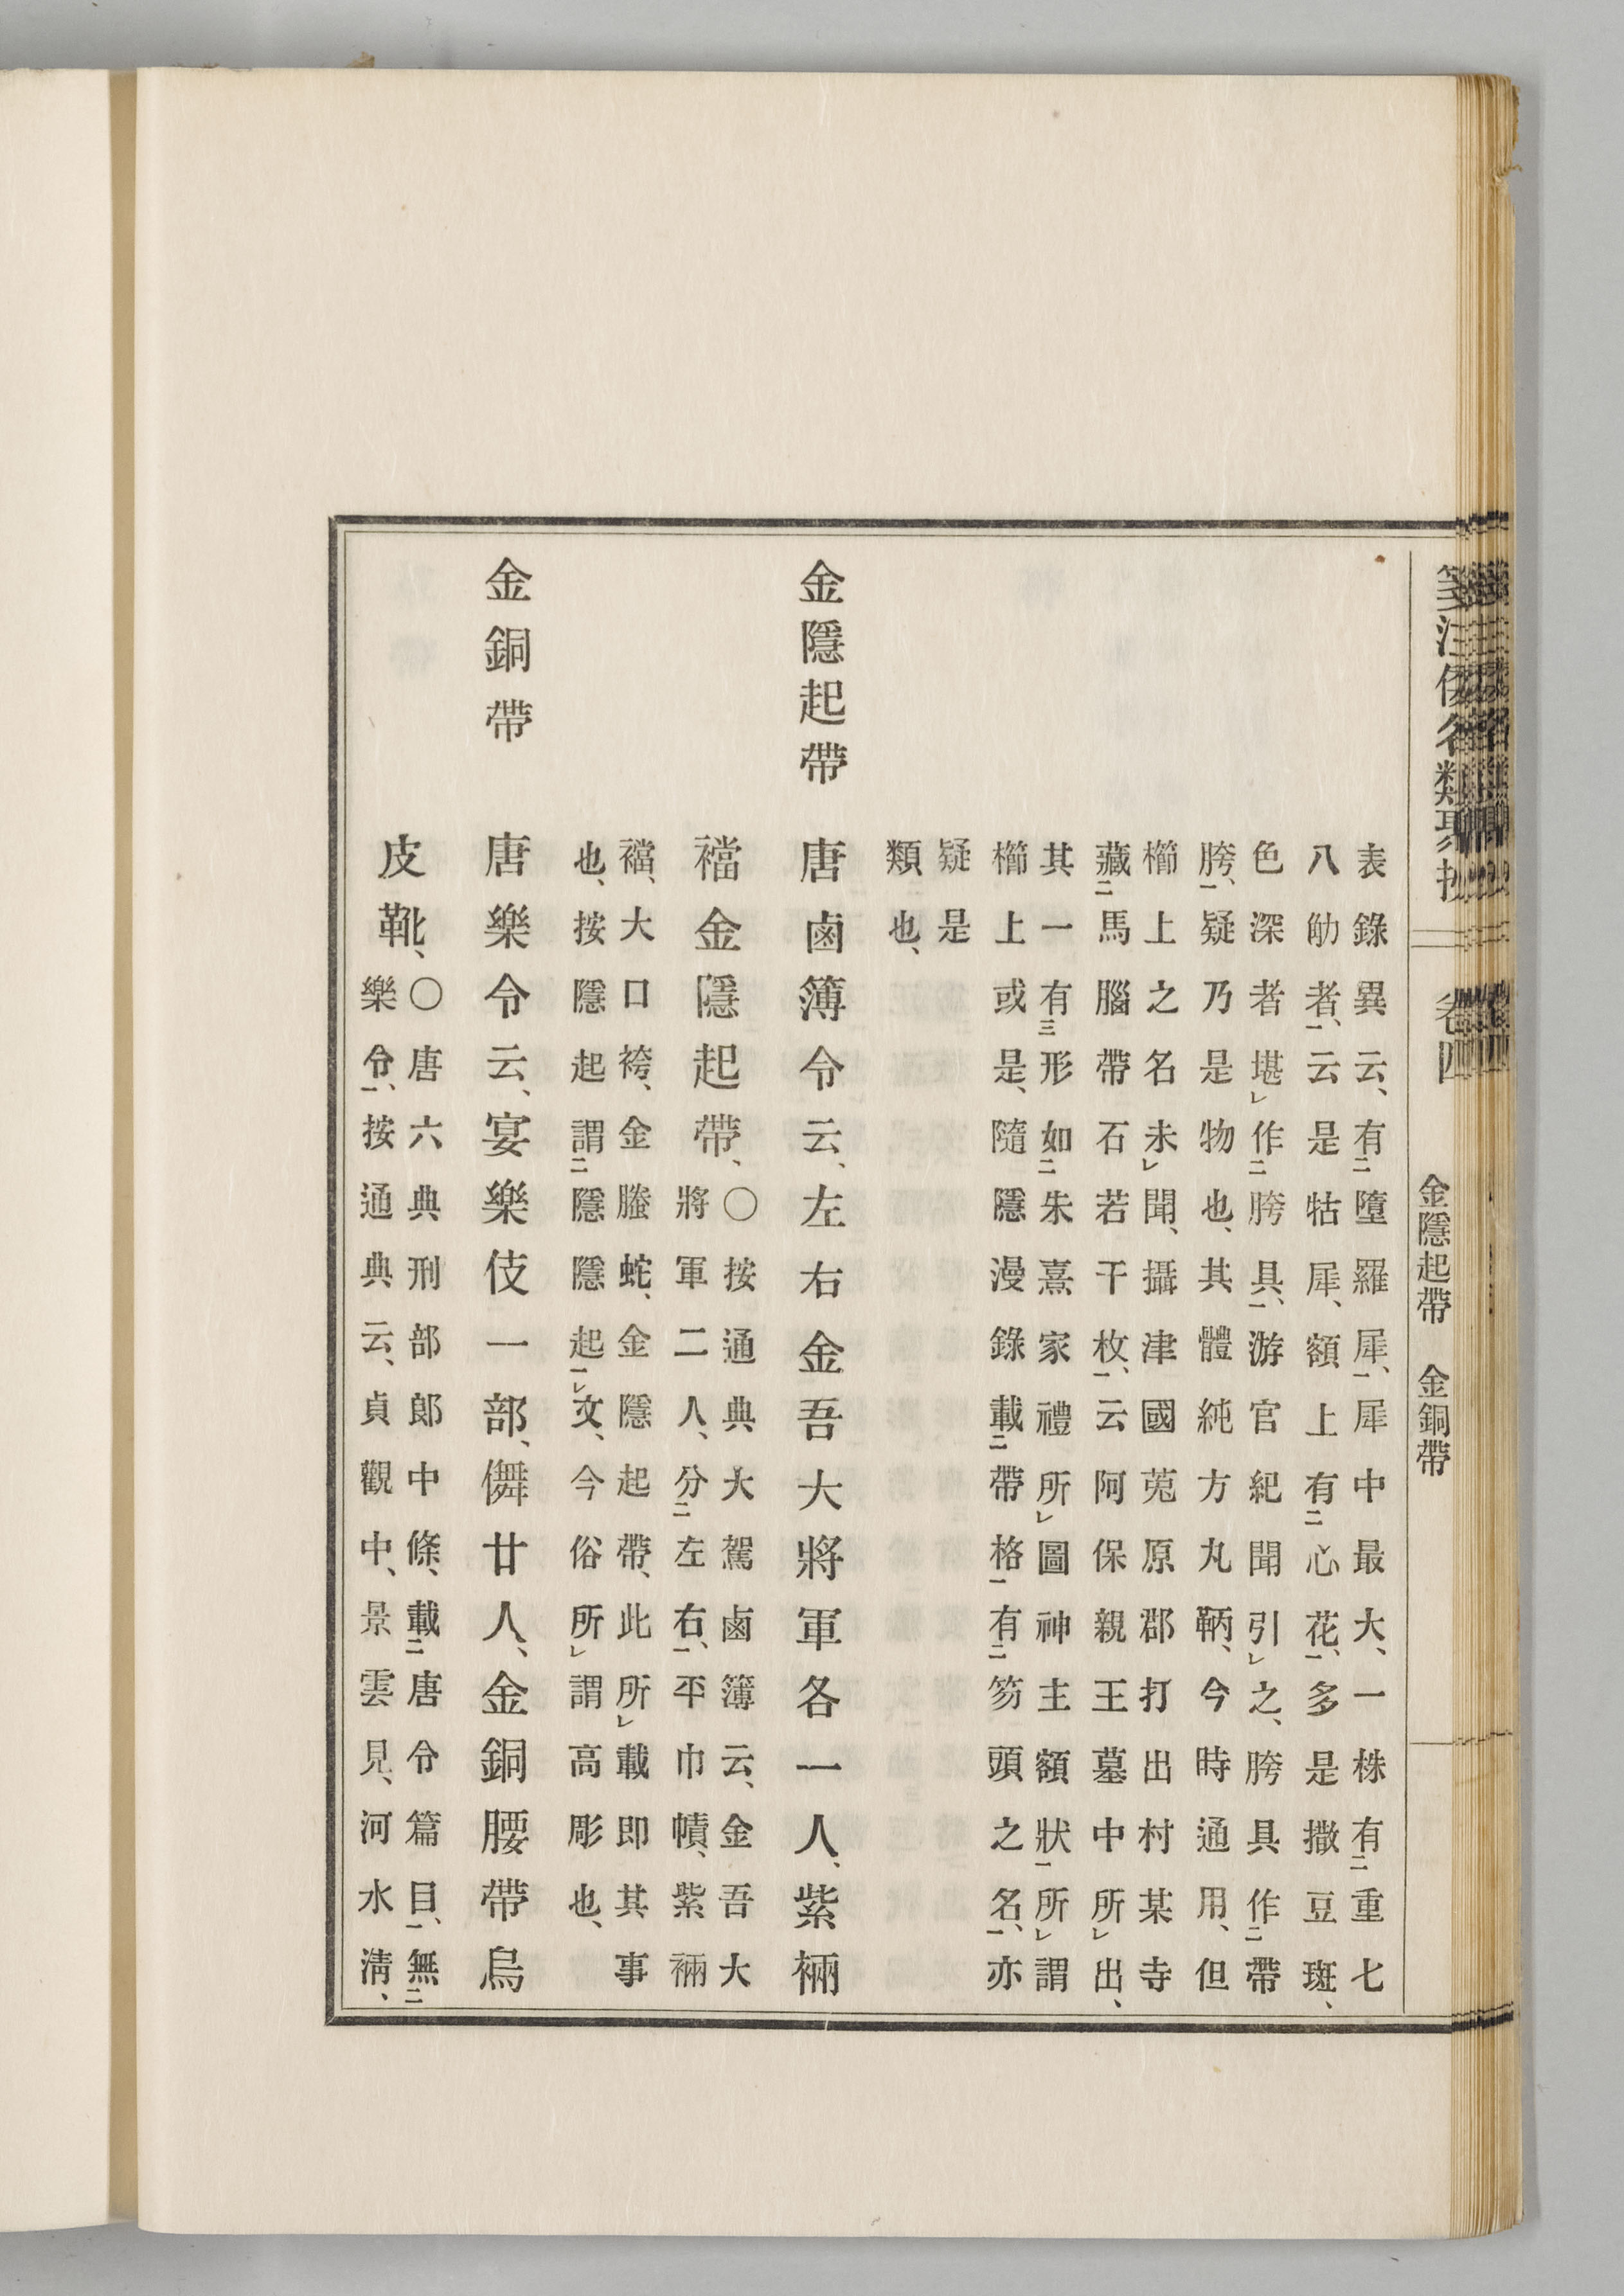 箋注倭名類聚抄 卷四 金隱起帶 金銅帶
表錄異云、有二墮羅犀一、犀中最大、一株有二重七
八觔者一、云是牯犀、額上有二心花一、多是撒豆斑、
色深者堪レ作二胯具一、游官紀聞引レ之、胯具作二帶
胯一、疑乃是物也、其體純方丸鞆、今時通用、但
櫛上之名未レ聞、攝津國菟原郡打出村某寺
藏二馬腦帶石若干枚一、云阿保親王墓中所レ出、
其一有三形如二朱熹家禮所レ圖神主額狀一所レ謂
櫛上或是、隨隱漫錄載二帶格一有二笏頭之名一、亦
疑是
類也、
金隱起帶 唐鹵簿令云、左右金吾大將軍各一人、紫裲
襠金隱起帶、
〇按通典大駕鹵簿云、金吾大
將軍二人、分二左右一、平巾幘、紫裲
襠、大口袴、金螣蛇、金隱起帶、此所レ載即其事
也、按隱起謂二隱隱起一レ文、今俗所レ謂高彫也、
金銅帶 唐樂令云、宴樂伎一部、儛廿人、金銅腰帶烏
皮靴、
〇唐六典刑部郎中條、載二唐令篇目一、無二
樂令一、按通典云、貞觀中、景雲見、河水淸、